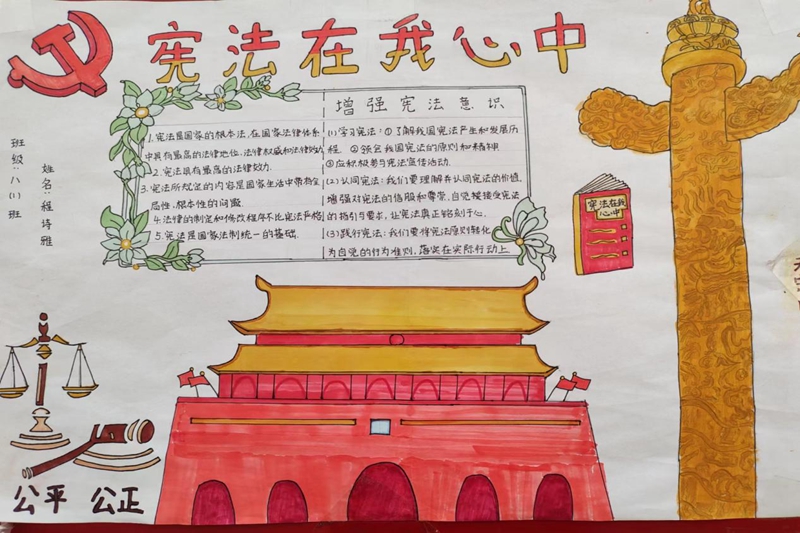 宪法在我心中
班级:八(1)班
姓名:程诗雅
1.宪法是国家的根本法,在国家法律体系
中具有最高的法律地位、法律权威和法律效力
2.宪法具有最高的法律效力.
3.宪法所规定的内容是国家生活中带有全
局性、根本性的问题.
4.法律的制定和修改程序不比宪法严格
5.宪法是国家法制统一的基础.
增强宪法意识
(1)学习宪法:①了解我国宪法产生和发展历
程 ②领会我国宪法的原则和精神
③应积极参与宪法宣传活动.
(2)认同宪法:我们要理解并认同宪法的价值,
增强对宪法的信服和尊崇,自觉接受宪法
的指引与要求,让宪法真正铭刻于心.
(3)践行宪法:我们要将宪法原则转化
为自觉的行为准则,落实在实际行动上
宪法在我
心中
公平 公正